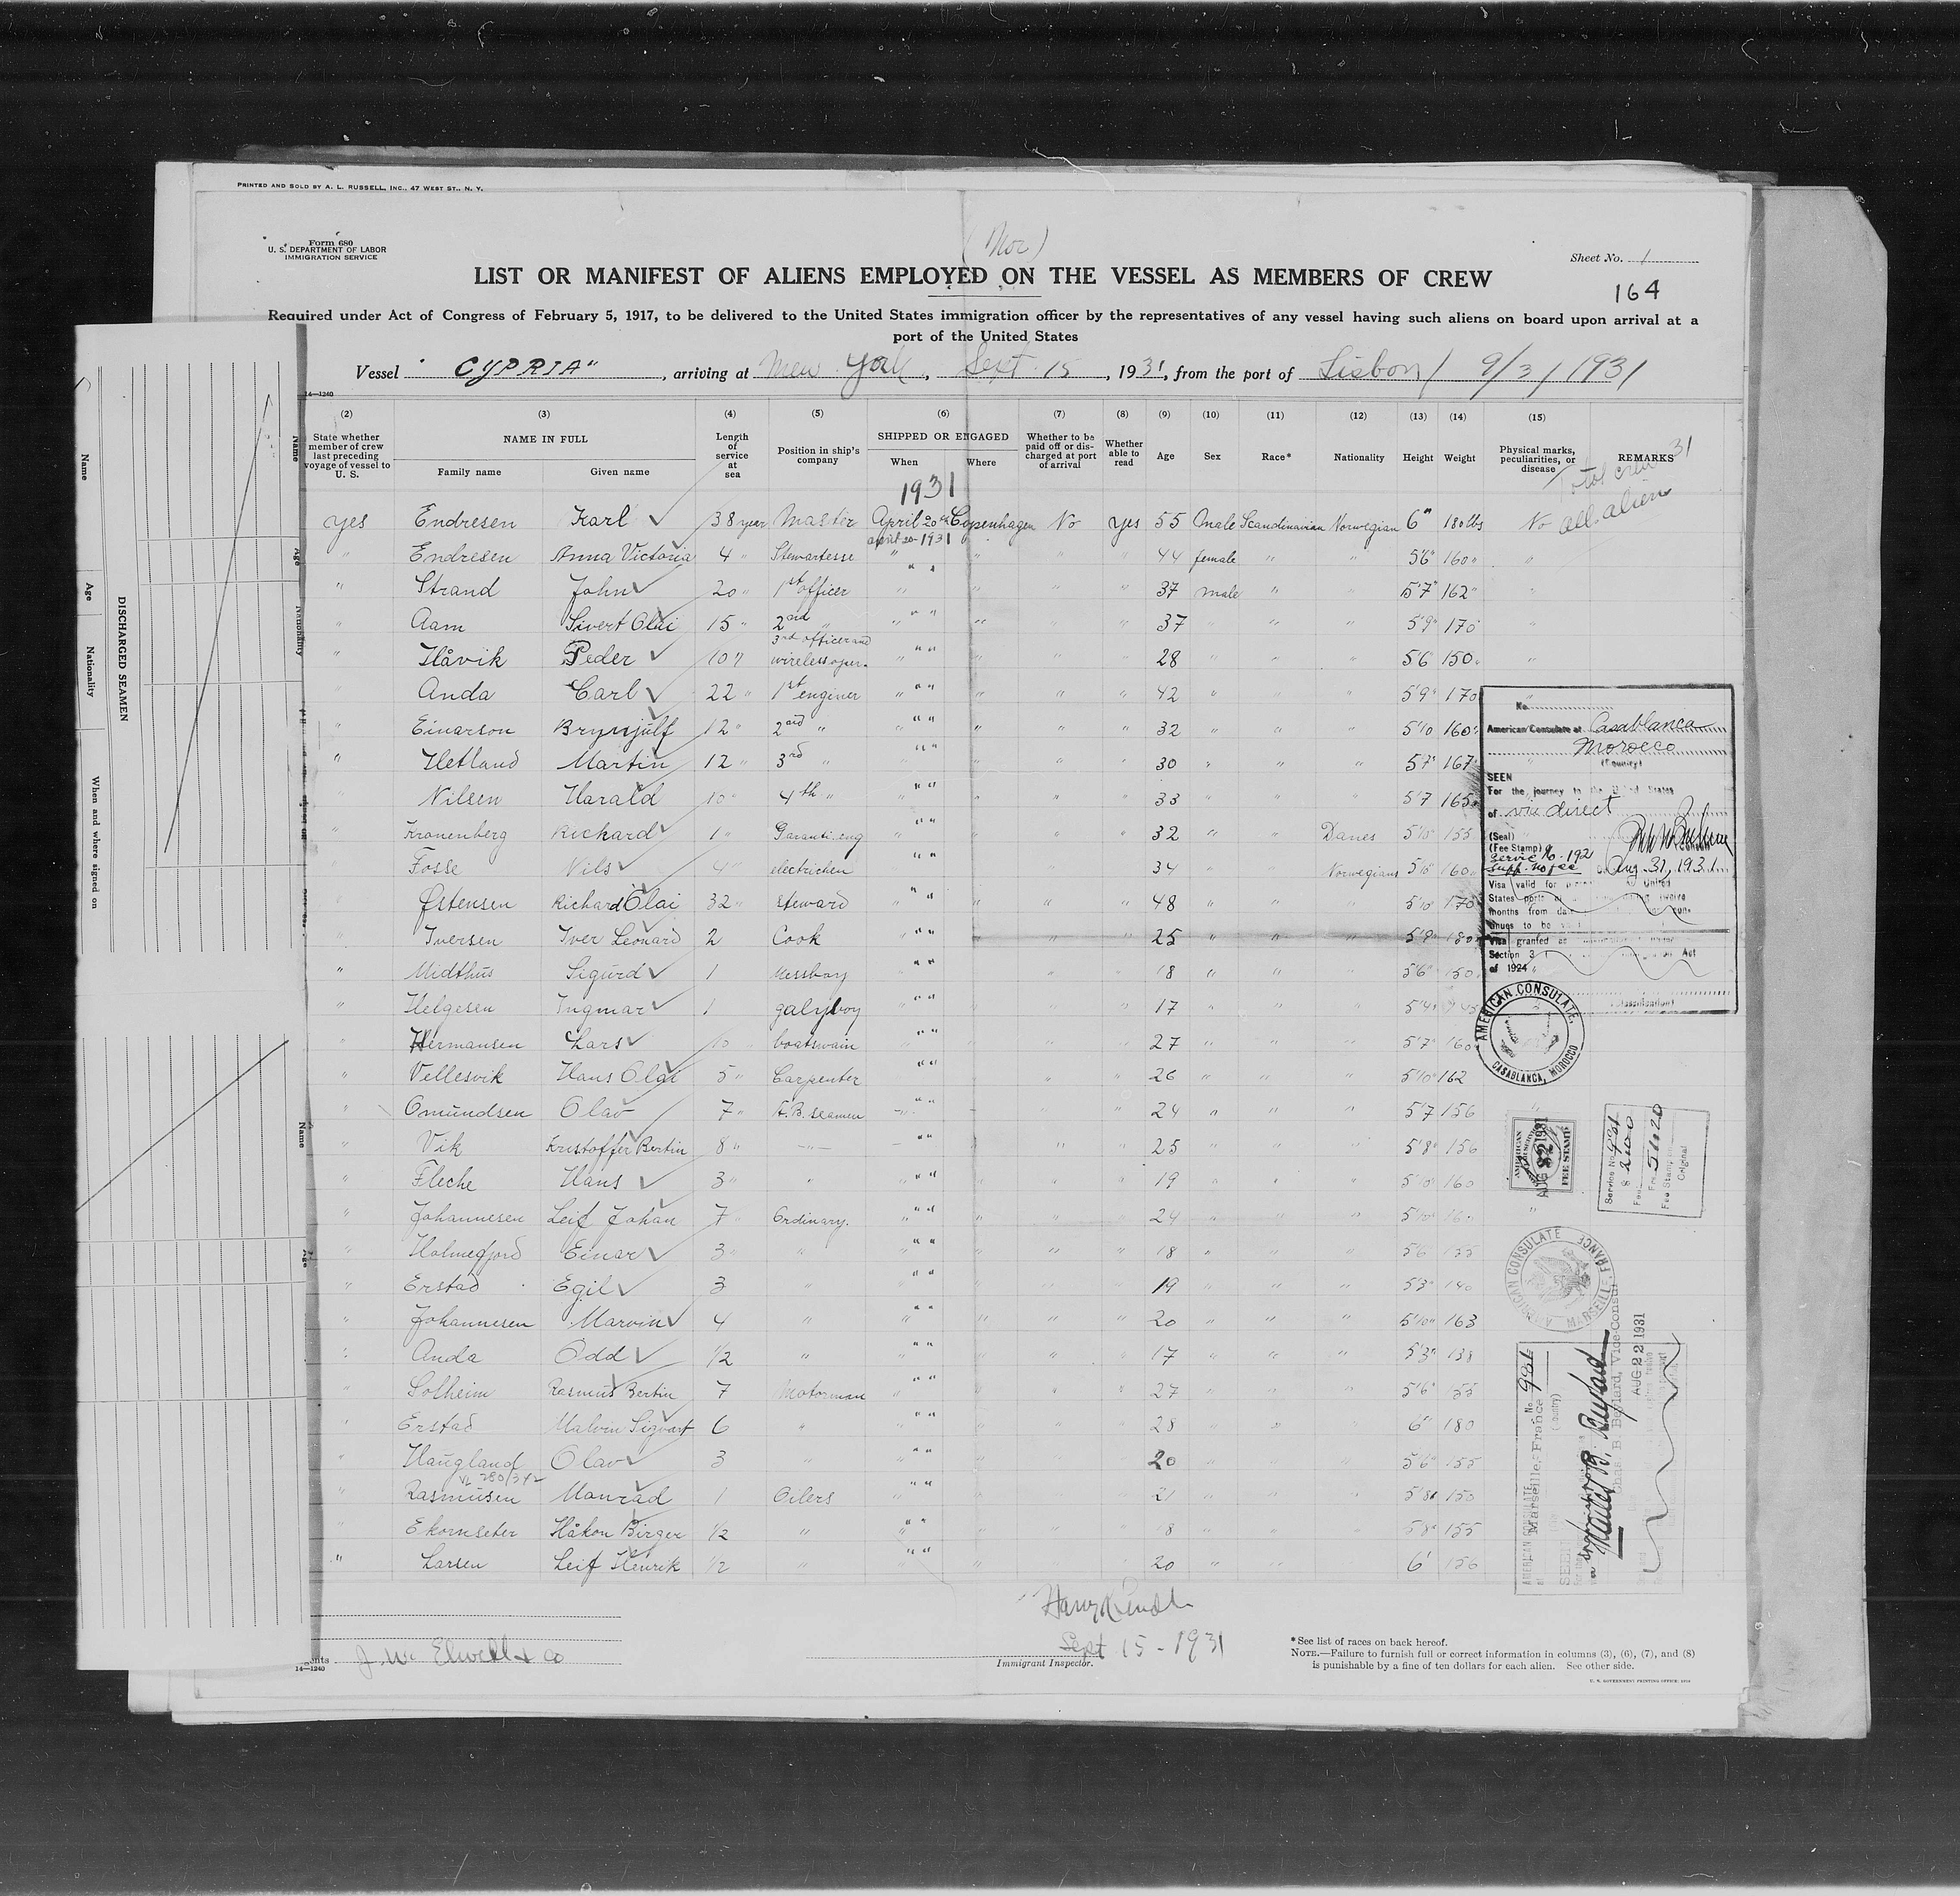 PRINTED AND SOLD BY A. L. RUSSELL, INC., 47 WEST ST., N. Y.
Form 680
U. S. DEPARTMENT OF LABOR
IMMIGRATION SERVICE
(Nor)
Sheet No. 1
LIST OR MANIFEST OF ALIENS EMPLOYED ON THE VESSEL AS MEMBERS OF CREW
164
Required under Act of Congress of February 5, 1917, to be delivered to the United States immigration officer by the representatives of any vessel having such aliens on board upon arrival at a
port of the United States
Vessel "CYPRIA", arriving at New York, Sept. 15, 1931, from the port of Lisbon / 9/3/1931
14—1240
(2) (3) (4) (5) (6) (7) (8) (9) (10) (11) (12) (13) (14) (15)
State whether member of crew last preceding voyage of vessel to U. S.
NAME IN FULL
Family name Given name
Length of service at sea
Position in ship's company
SHIPPED OR ENGAGED
When Where
Whether to be paid off or discharged at port of arrival
Whether able to read
Age Sex Race* Nationality Height Weight
Physical marks, peculiarities, or disease
REMARKS
Total crew 31
all alien
1931
yes Endresen Karl 38 year Master April 20th Copenhagen No yes 55 male Scandinavian Norwegian 6" 180 lbs No
" Endresen Anna Victoria 4 " Stewartesse april 20-1931 " 44 female " " 5'6" 160 " "
" Strand John 20 " 1st officer " " " " " 37 male " " 5'7" 162 " "
" Aam Sivert Olai 15 " 2nd " " " " " " 37 " " " 5'9" 170 "
" Håvik Peder 10 " 3rd officer and wireless oper. " " 28 " " " 5'6 150 " "
" Anda Carl 22 " 1st enginer " " " " " 42 " " " 5'9" 170 "
" Einarson Brynjulf 12 " 2nd " " " " " " 32 " " " 5'10 160
" Hetland Martin 12 " 3rd " " " " " " 30 " " " 5'7" 167
" Nilsen Harald 10 " 4th " " " " " " 33 " " " 5'7 165
" Kronenberg Richard 1 " Garanti.eng " " " " " 32 " " Danes 5'10" 155
" Fosse Nils 4 " electrichen " " " " 34 " " Norwegians 5'10" 160
" Østensen Richard Olai 32 " steward " " " " " 48 " " " 5'10" 170
" Iversen Iver Leonard 2 Cook " " " " 25 " " " 5'9" 180
" Midthus Sigurd 1 Messboy " " " " 18 " " " 5'6" 150
" Helgesen Ingmar 1 galyboy " " " " " 17 " " " 5'4"
" Hermansen Lars 10 " boatswain " " " " " 27 " " " 5'7" 160
" Vellesvik Hans Olai 5 " Carpenter " " " " 26 " " " 5'10" 162
" Omundsen Olav 7 " A.B. seamen " " " " 24 " " " 5'7 156 "
" Vik Kristoffer Bertin 8 " " " " " " 25 " " " 5'8" 156
" Fleche Hans 3 " " " " " " " 19 " " " 5'10" 160
" Johannesen Leif Johan 7 " Ordinary. " " " " " 24 " " " 5'10"
" Holmefjord Einar 3 " " " " " " " 18 " " " 5'6 155
" Erstad Egil 3 " " " " " 19 " " " 5'3" 140
" Johannesen Marvin 4 " " " " " 20 " " " 5'10" 163
" Anda Odd 1/2 " " " " " 17 " " " 5'3" 138
" Solheim Rasmus Bertin 7 Motorman " " " " 27 " " " 5'6" 155
" Erstad Malvin Sigvart 6 " " " " " 28 " " 6" 180
" Haugland Olav 3 " " " " " 20 " " " 5'6" 155
" Rasmusen Monrad 1 Oilers " " " " 21 " " " 5'8" 150
" Ekornseter Håkon Birger 1/2 " " " " 18 " " " 5'8" 155
" Larsen Leif Henrik 1/2 " " " 20 " " 6' 156
No.
American Consulate at Casablanca
Morocco
(Country)
SEEN
For the journey to the United States
of via direct
(Seal)
(Fee Stamp)
Consul
Aug. 31, 1931
Visa valid for
United
States ports
months from date
Visa granted as
Section 3
Act
of 1924
(Classification)
AMERICAN CONSULATE,
CASABLANCA, MOROCCO
AMERICAN CONSULAR SERVICE
FEE STAMP
AUG 22 1931
Service No. 991
Fee Stamp
Original
AMERICAN CONSULATE
MARSEILLE, FRANCE
AMERICAN CONSULATE
at Marseille, France
No. 991
(Country)
SEEN
Vice Consul
AUG 22 1931
Sept 15 - 1931
Immigrant Inspector.
J. W. Elwell & Co
14—1240
*See list of races on back hereof.
NOTE.—Failure to furnish full or correct information in columns (3), (6), (7), and (8)
is punishable by a fine of ten dollars for each alien. See other side.
U. S. GOVERNMENT PRINTING OFFICE
DISCHARGED SEAMEN
Name
Age
Nationality
When and where signed on
Name
Age
Nationality
Name
Age